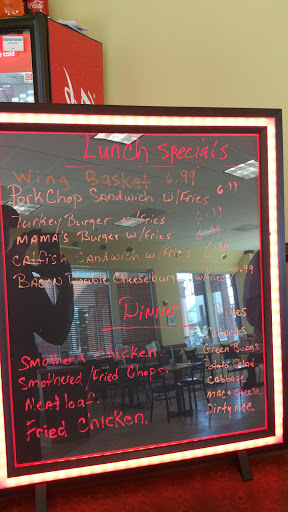 Lunch Specials
Wing Basket 6.99
Pork Chop Sandwich w/Fries 6.99
Turkey Burger w/Fries 6.99
MAMA'S Burger w/Fries 6.99
Catfish Sandwich w/Fries 6.99
Bacon Double Cheeseburger w/Fries 6.99
Dinner Sides
Smotherd Chicken
Smothered/Fried Chops.
Meatloaf.
Fried Chicken.
Green Beans
Cabbage
Mac & Cheese
Dirty rice